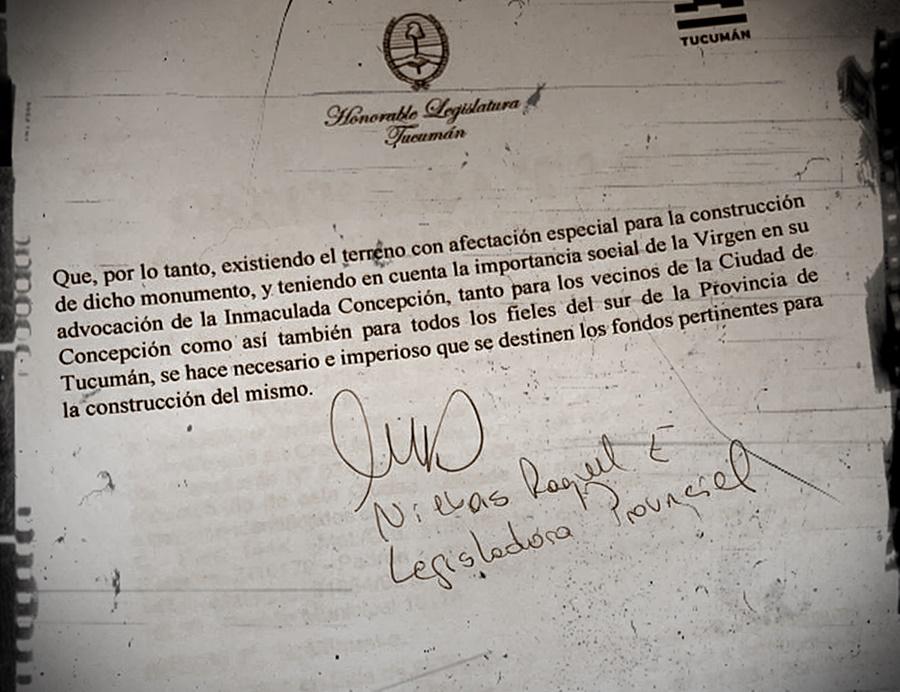 TUCUMÁN
Honorable Legislatura
Tucumán
Que, por lo tanto, existiendo el terreno con afectación especial para la construcción
de dicho monumento, y teniendo en cuenta la importancia social de la Virgen en su
advocación de la Inmaculada Concepción, tanto para los vecinos de la Ciudad de
Concepción como así también para todos los fieles del sur de la Provincia de
Tucumán, se hace necesario e imperioso que se destinen los fondos pertinentes para
la construcción del mismo.
Nievas Raquel E
Legisladora Provincial